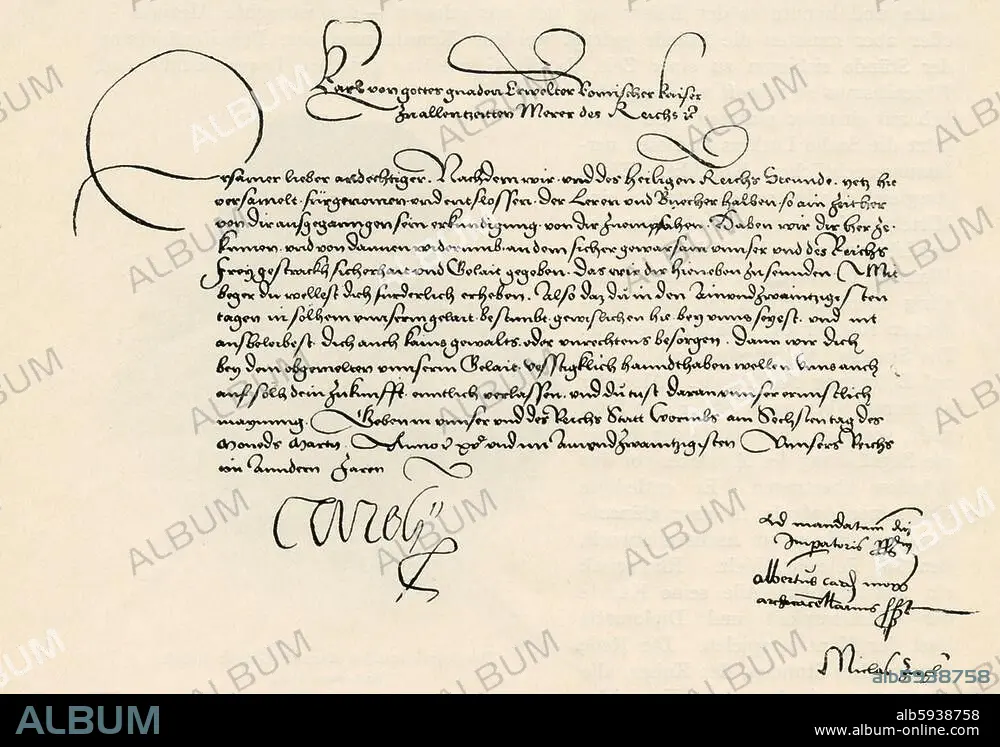 Karl von gottes gnaden Erwelter Romischer Keiser
Zu allen tzeitten Merer des Reichs
Ersamer lieber andechtiger. Nachdem wir, und des heiligen Reichs Steunde, yetz hie
versamelt, fürgenomen und entslossen, der Leren und Buecher halben, so ain zeither
von dir ausgegangen sein erkundigung von dir zu empfahen, Haben wir dir her ze
kumen, und von dannen widerumb an dein sicher gewarsam unnser und des Reichs
Frey gestrackh sicherhait und Gelait gegeben, das wir dir hieneben zusennden, Mit
beger du wellest dich fürderlich erheben, Also daz du in den Ainundzwaintzigisten
tagen in solhem unnserm gelait bestimbt gewislichen hie bey unns seyest, und nit
ausbeleibest, dich auch kains gewalts oder unrechtens besorgen, Dann wir dich
bey dem obgemelten unnserm Gelait vesstigklich hanndthaben wellen, Unns auch
auf solh dein zukunfft enntlich verlassen, und du tust daran unser ernnstlich
maynung. Geben in unnser und des Reichs Statt Wormbs am Sechsten tag des
Moneds Marty. Anno &c xv^c und im Ainundzwaintzigisten Unnsers Reichs
im Anndern Jaren
Carolus
Ad mandatum dni
Imperatoris pprm
Albertus card mogo
archicancellarius sst
Niclas
ALBUM
alb5938758
alb5938758
www.album-online.com